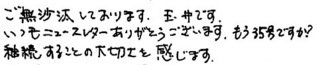 ご無沙汰しております。玉井です。
いつもニュースレターありがとうございます。もう35号ですか?
継続することの大切さを感じます。